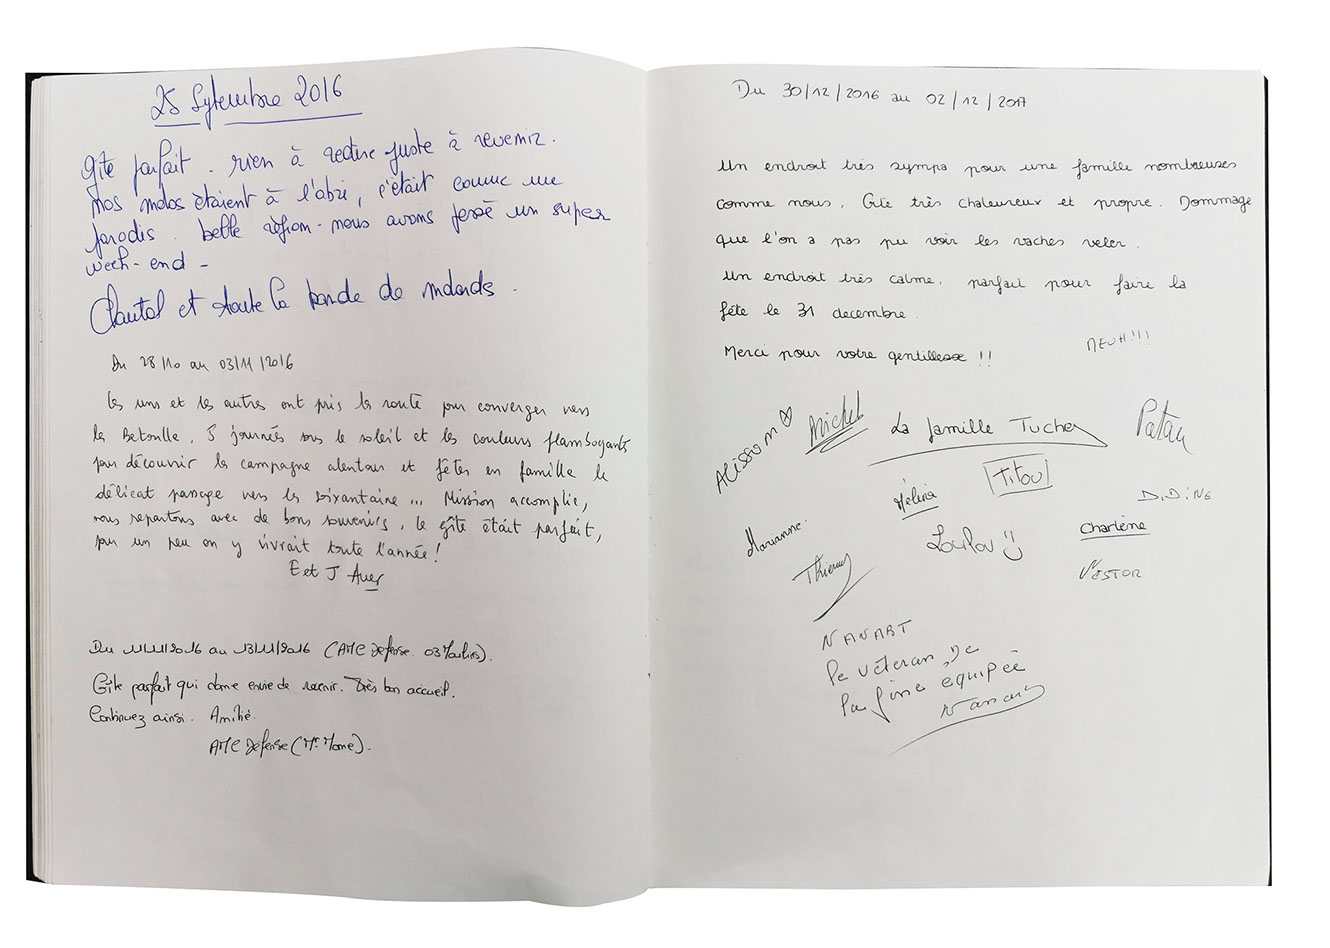 25 Septembre 2016
Gîte parfait. rien à redire juste à revenir.
Nos motos étaient à l'abri, c'était comme une
paradis. belle région. nous avons passé un super
week-end -
Chantal et toute la bande de motards.
Du 28/10 au 03/11/2016
Les uns et les autres ont pris la route pour converger vers
la Betoulle. 5 journées sous le soleil et les couleurs flamboyants
pour découvrir la campagne alentour et fêter en famille le
délicat passage vers la soixantaine... Mission accomplie,
nous repartons avec de bons souvenirs, le gîte était parfait,
pour un peu on y vivrait toute l'année!
E et J Auer
Du 11/11/2016 au 13/11/2016 (AMC Défense. 03 Moulins).
Gîte parfait qui donne envie de revenir. Très bon accueil.
Continuez ainsi. Amitié.
AMC Défense (Mr. Morne).
Du 30/12/2016 au 02/12/2017
Un endroit très sympa pour une famille nombreuses
comme nous. Gîte très chaleureux et propre. Dommage
que l'on a pas pu voir les vaches veler.
Un endroit très calme, parfait pour faire la
fête le 31 decembre.
Merci pour votre gentillesse !!
MEUH!!!
Alisson
Michel
La famille Tuche
Patau
Titou
Mélina
D.DiNE
Marianne.
Loulou
Charlène
Thierry
NESTOR
NANART
le véteran de
la fine equipée
Nanart